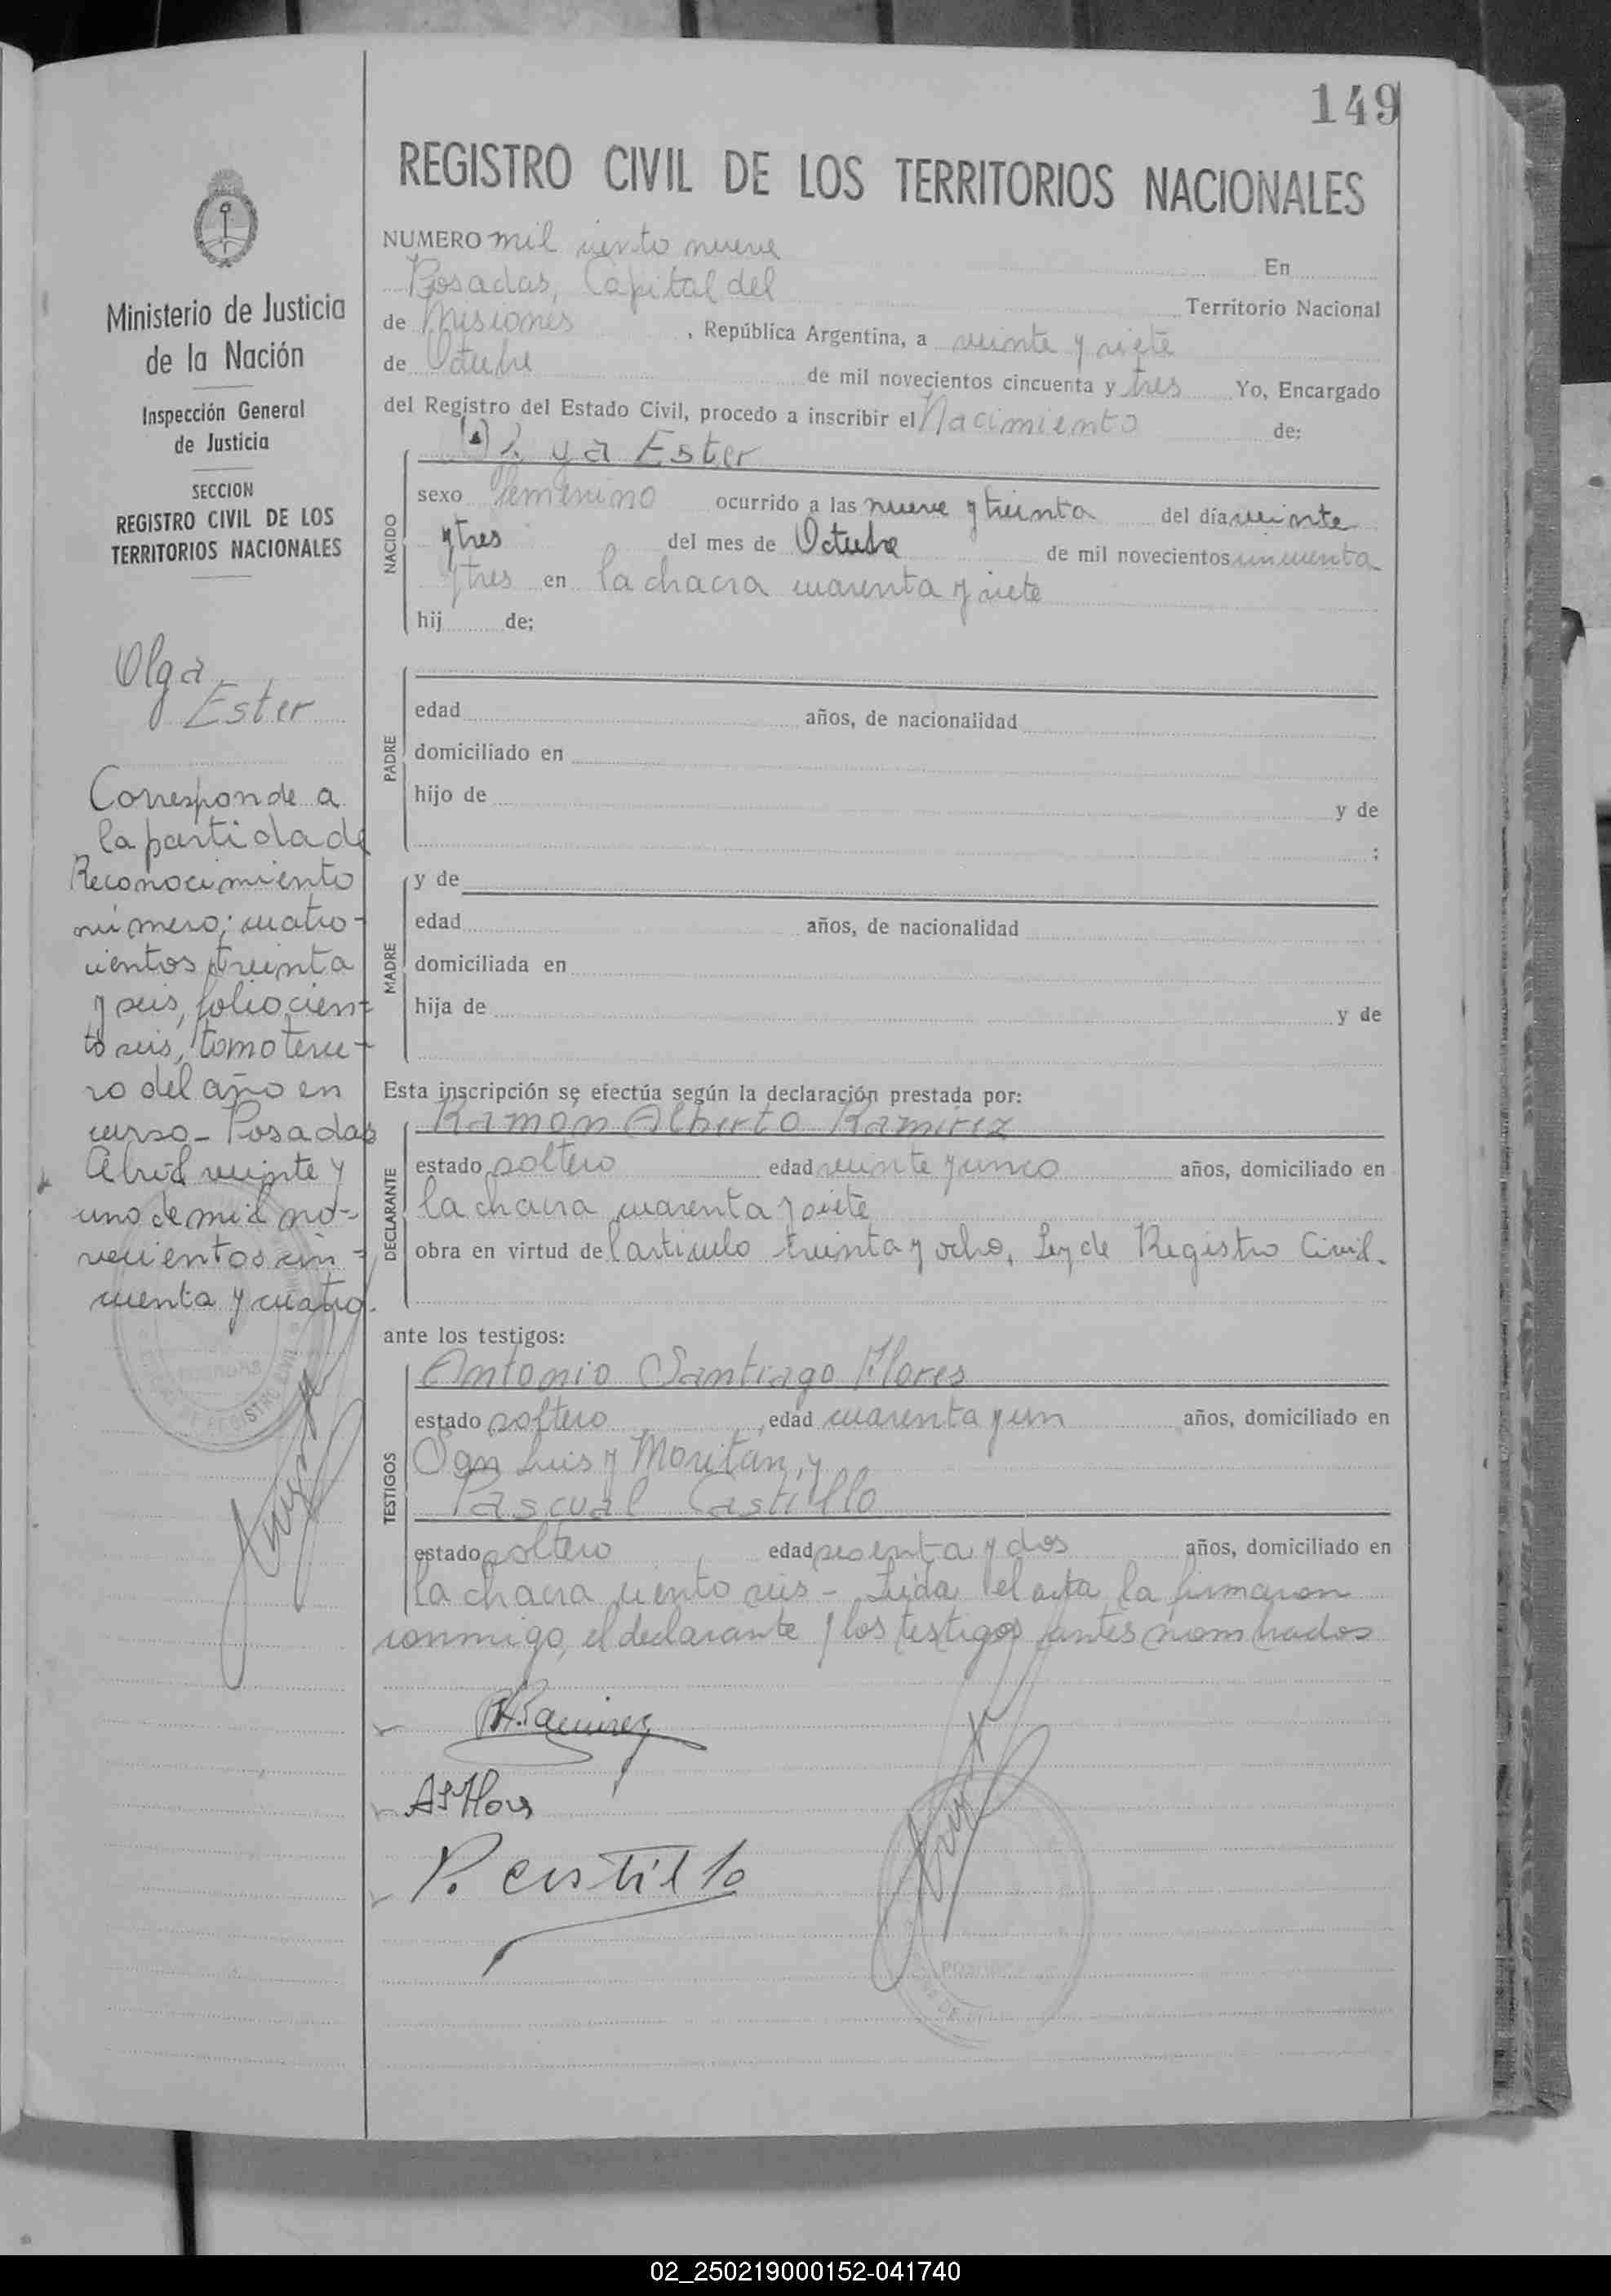 149
REGISTRO CIVIL DE LOS TERRITORIOS NACIONALES
NUMERO mil ciento nueve
En
Posadas, Capital del
Territorio Nacional
de Misiones, República Argentina, a veinte y siete
de Octubre de mil novecientos cincuenta y tres Yo, Encargado
del Registro del Estado Civil, procedo a inscribir el Nacimiento de:
Ester
NACIDO
sexo femenino ocurrido a las nueve y treinta del día veinte
y tres del mes de Octubre de mil novecientos cincuenta
y tres en la chacra cuarenta y siete
hij de:
PADRE
edad años, de nacionalidad
domiciliado en
hijo de y de
;
MADRE
y de
edad años, de nacionalidad
domiciliada en
hija de y de
Esta inscripción se efectúa según la declaración prestada por:
DECLARANTE
Ramón Alberto Ramirez
estado soltero edad veinte y cinco años, domiciliado en
la chacra cuarenta y siete
obra en virtud del articulo treinta y ocho, Ley de Registro Civil.
ante los testigos:
TESTIGOS
Antonio Santiago Flores
estado soltero edad cuarenta y un años, domiciliado en
San Luis y Moritán, y
Pascual Castillo
estado soltero edad sesenta y dos años, domiciliado en
la chacra ciento seis - Leida el acta la firmaron
conmigo, el declarante y los testigos antes nombrados
RA. Ramirez
AS Flores
P. Castillo
Ministerio de Justicia
de la Nación
Inspección General
de Justicia
SECCION
REGISTRO CIVIL DE LOS
TERRITORIOS NACIONALES
Olga
Ester
Corresponde a
la partida de
Reconocimiento
número; cuatro-
cientos treinta
y seis, folio cien-
to seis, tomo terce-
ro del año en
curso - Posadas
Abril veinte y
uno de mil no-
vecientos cin-
cuenta y cuatro.
02_250219000152-041740